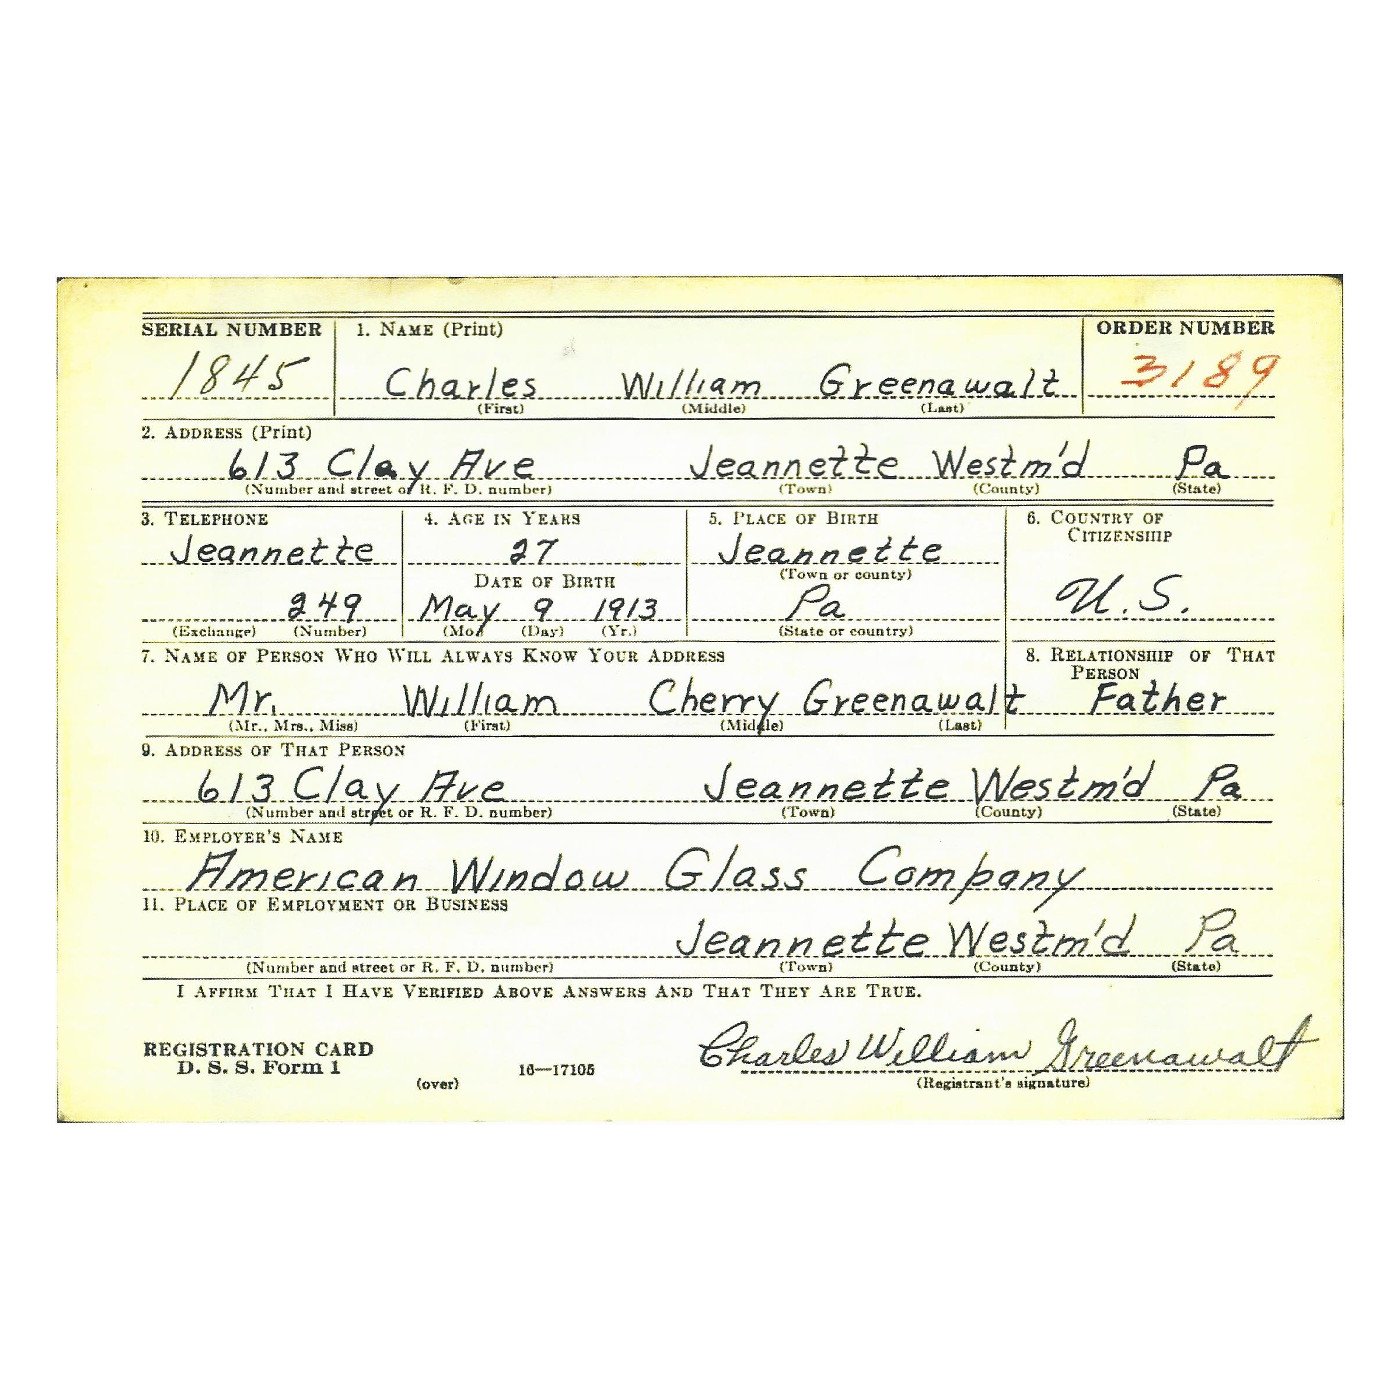 SERIAL NUMBER 1. NAME (Print) ORDER NUMBER
1845 Charles William Greenawalt 3189
(First) (Middle) (Last)
2. ADDRESS (Print)
613 Clay Ave Jeannette Westm'd Pa
(Number and street or R. F. D. number) (Town) (County) (State)
3. TELEPHONE 4. AGE IN YEARS 5. PLACE OF BIRTH 6. COUNTRY OF
CITIZENSHIP
Jeannette 27 Jeannette
DATE OF BIRTH (Town or county)
249 May 9 1913 Pa U.S.
(Exchange) (Number) (Mo.) (Day) (Yr.) (State or country)
7. NAME OF PERSON WHO WILL ALWAYS KNOW YOUR ADDRESS 8. RELATIONSHIP OF THAT
PERSON
Mr. William Cherry Greenawalt Father
(Mr., Mrs., Miss) (First) (Middle) (Last)
9. ADDRESS OF THAT PERSON
613 Clay Ave Jeannette Westm'd Pa
(Number and street or R. F. D. number) (Town) (County) (State)
10. EMPLOYER'S NAME
American Window Glass Company
11. PLACE OF EMPLOYMENT OR BUSINESS
Jeannette Westm'd Pa
(Number and street or R. F. D. number) (Town) (County) (State)
I AFFIRM THAT I HAVE VERIFIED ABOVE ANSWERS AND THAT THEY ARE TRUE.
REGISTRATION CARD Charles William Greenawalt
D. S. S. Form 1 16—17105
(over) (Registrant's signature)